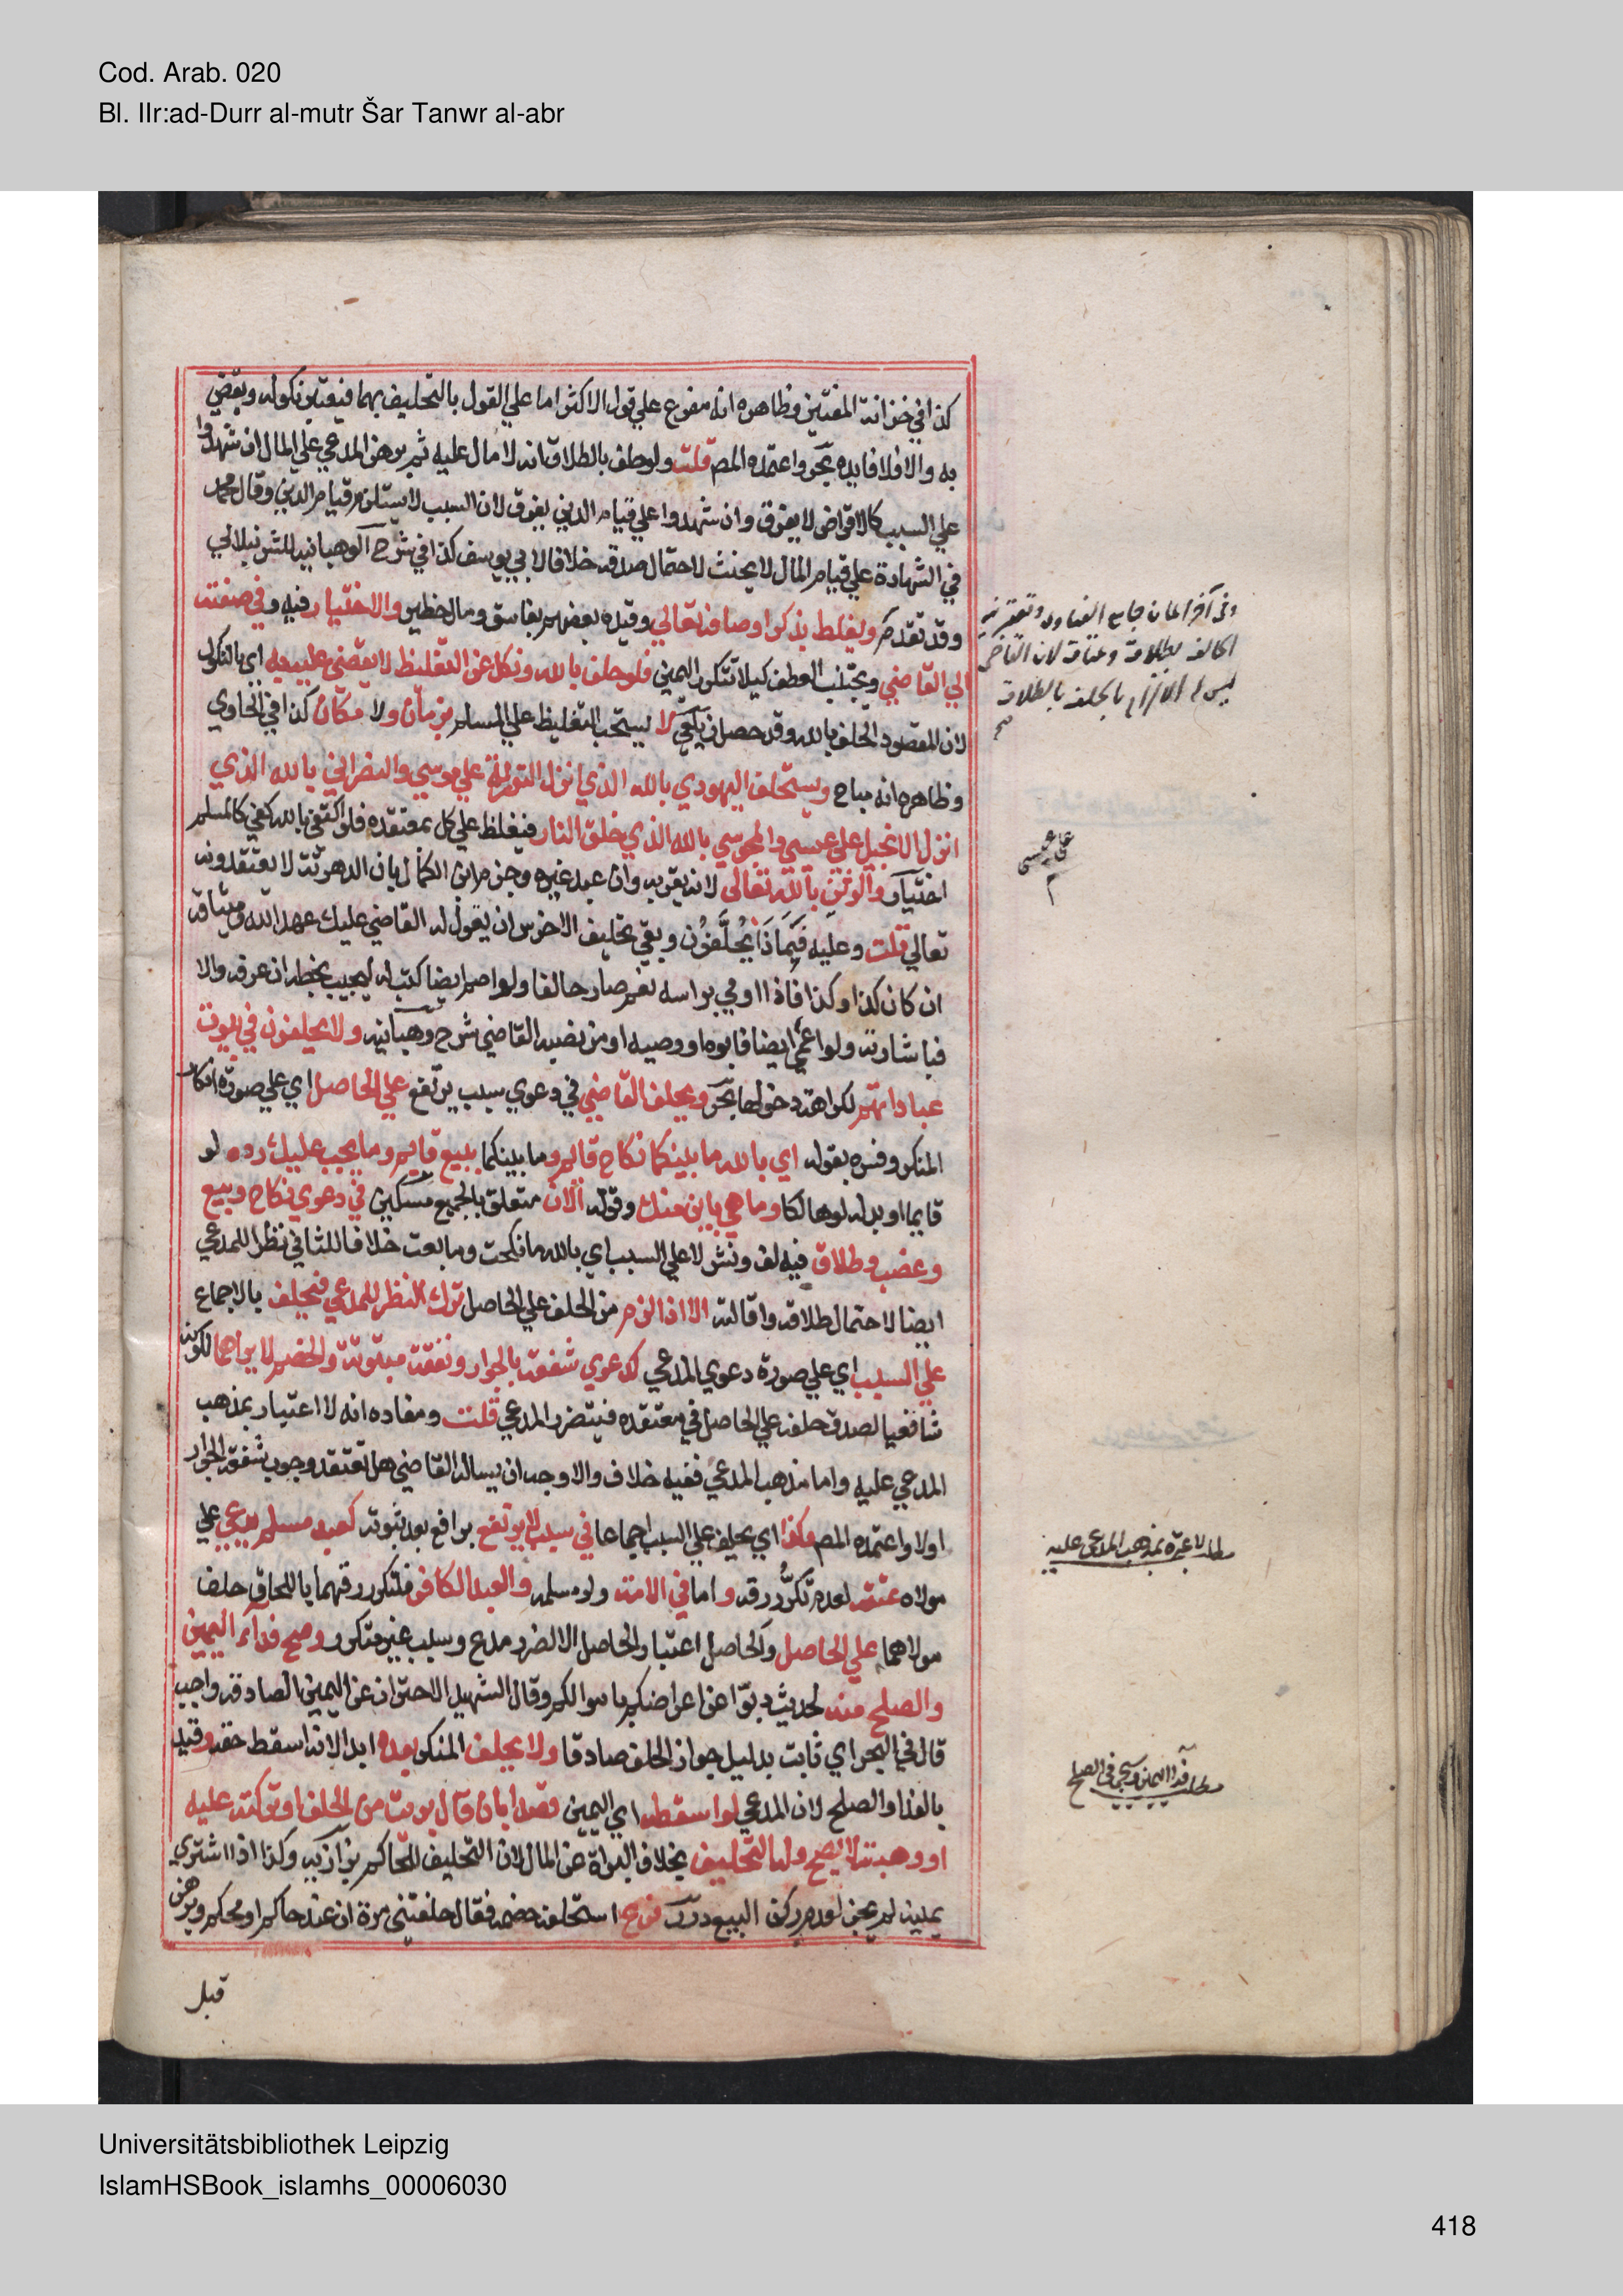 Cod. Arab. 020
Bl. IIr:ad-Durr al-mutr Šar Tanwr al-abr
كذا في خزانة المفتين وظاهره انه مفرع علي قول الاكثر اما علي القول بالتحليف بهما فيعتبر نكوله ويقضي
به والا فلا فايده بحر واعتمده المص قلت ولو حلف بالطلاق انه لا مال عليه ثم برهن المدعي علي المال ان شهدوا
علي السبب كالاقراض لا يفرق وان شهدوا علي قيام الدين يفرق لان السبب لا يستلزم قيام الدين وقال محمد
في الشهادة علي قيام المال لا يحنث لاحتمال صدقه خلافا لابي يوسف كذا في شرح الوهبانيه للشرنبلالي
وقد تقدم ويغلظ بذكر اوصافه تعالي وقيده بعضهم بفاسق ومال خطير والاختيار فيه وفي صفته
الي القاضي ويجتنب العطف كيلا تتكرر اليمين فلو حلف بالله ونكل عن التغليظ لا يقضي عليه به اي بالنكول
لان المقصود الحلف بالله وقد حصل زيلعي لا يستحب التغليظ علي المسلم بزمان ولا مكان كذا في الحاوي
وظاهره انه مباح ويستحلف اليهودي بالله الذي انزل التورية علي موسي والنصراني بالله الذي
انزل الانجيل علي عيسي والمجوسي بالله الذي خلق النار فيغلظ علي كل بمعتقده فلو اكتفي بالله كفي كالمسلم
اختيار والوثني بالله تعالي لانه يقر به وان عبد غيره وجزم ابن الكمال بان الدهرية لا يعتقدونه
تعالي قلت وعليه فبماذا يحلفون وبقي تحليف الاخرس ان يقول له القاضي عليك عهد الله وميثاقه
ان كان كذا وكذا فاذا اومي براسه نعم صار حالفا ولو اصم ايضا كتب له ليجيب بخطه ان عرفه والا
فباشارته ولو اعمي ايضا فابوه او وصيه او من نصبه القاضي شرح وهبانيه ولا يحلفون في بيوت
عباداتهم لكراهة دخولها بحر ويحلف القاضي في دعوي سبب يرتفع علي الحاصل اي علي صورة انكار
المنكر وفسره بقوله اي بالله ما بينكما نكاح قايم وما بينكما بيع قايم وما يجب عليك رده لو
قايما او بدله لو هالكا وما هي باين منك وقوله الان متعلق بالجميع مسكين في دعوي نكاح وبيع
وغصب وطلاق فيه لف ونشر لا علي السبب اي بالله ما نكحت وما بعت خلافا للثاني نظرا للمدعي
ايضا لاحتمال طلاقه واقالته الا اذا لزم من الحلف علي الحاصل ترك النظر للمدعي فيحلف بالاجماع
علي السبب اي علي صورة دعوي المدعي كدعوي شفعة بالجوار ونفقة مبتوتة والخصم لا يراهما لكونه
شافعيا لصدق حلفه علي الحاصل في معتقده فيتضرر المدعي قلت ومفاده انه لا اعتبار بمذهب
المدعي عليه واما مذهب المدعي ففيه خلاف والاوجه ان يساله القاضي هل تعتقد وجوب شفعة الجوار
اولا واعتمده المص وكذا اي يحلف علي السبب اجماعا في سبب لا يرتفع برافع بعد ثبوته كعبد مسلم يدعي علي
مولاه عتقه لعدم تكرر رقه واما في الامة ولو مسلمه والعبد الكافر فلتكرر رقهما باللحاق حلف
مولاهما علي الحاصل والحاصل اعتبار الحاصل الا لضرر مدع وسبب غير متكرر وصح فداء اليمين
والصلح منه لحديث ذبوا عن اعراضكم باموالكم وقال الشهيد الاحتراز عن اليمين الصادقه واجب
قال في البحر اي ثابت بدليل جواز الحلف صادقا ولا يحلف المنكر بعده ابدا لانه اسقط حقه وقيد
بالفدا والصلح لان المدعي لو اسقطه اي اليمين قصدا بان قال برئت من الحلف او تركته عليه
او وهبته لا يصح وله التحليف بخلاف البراة عن المال لان التحليف للحاكم بزازيه وكذا اذا اشتري
يمينه لم يجز لعدم ركن البيع درر فرع استحلف خصمه فقال حلفتني مرة ان عند حاكم او محكم وبرهن
قبل
علي عيسي
مطلب لا عبرة بمذهب المدعي عليه
مطلب فداء اليمين وسيجي في الصلح
Universitätsbibliothek Leipzig
IslamHSBook_islamhs_00006030
418